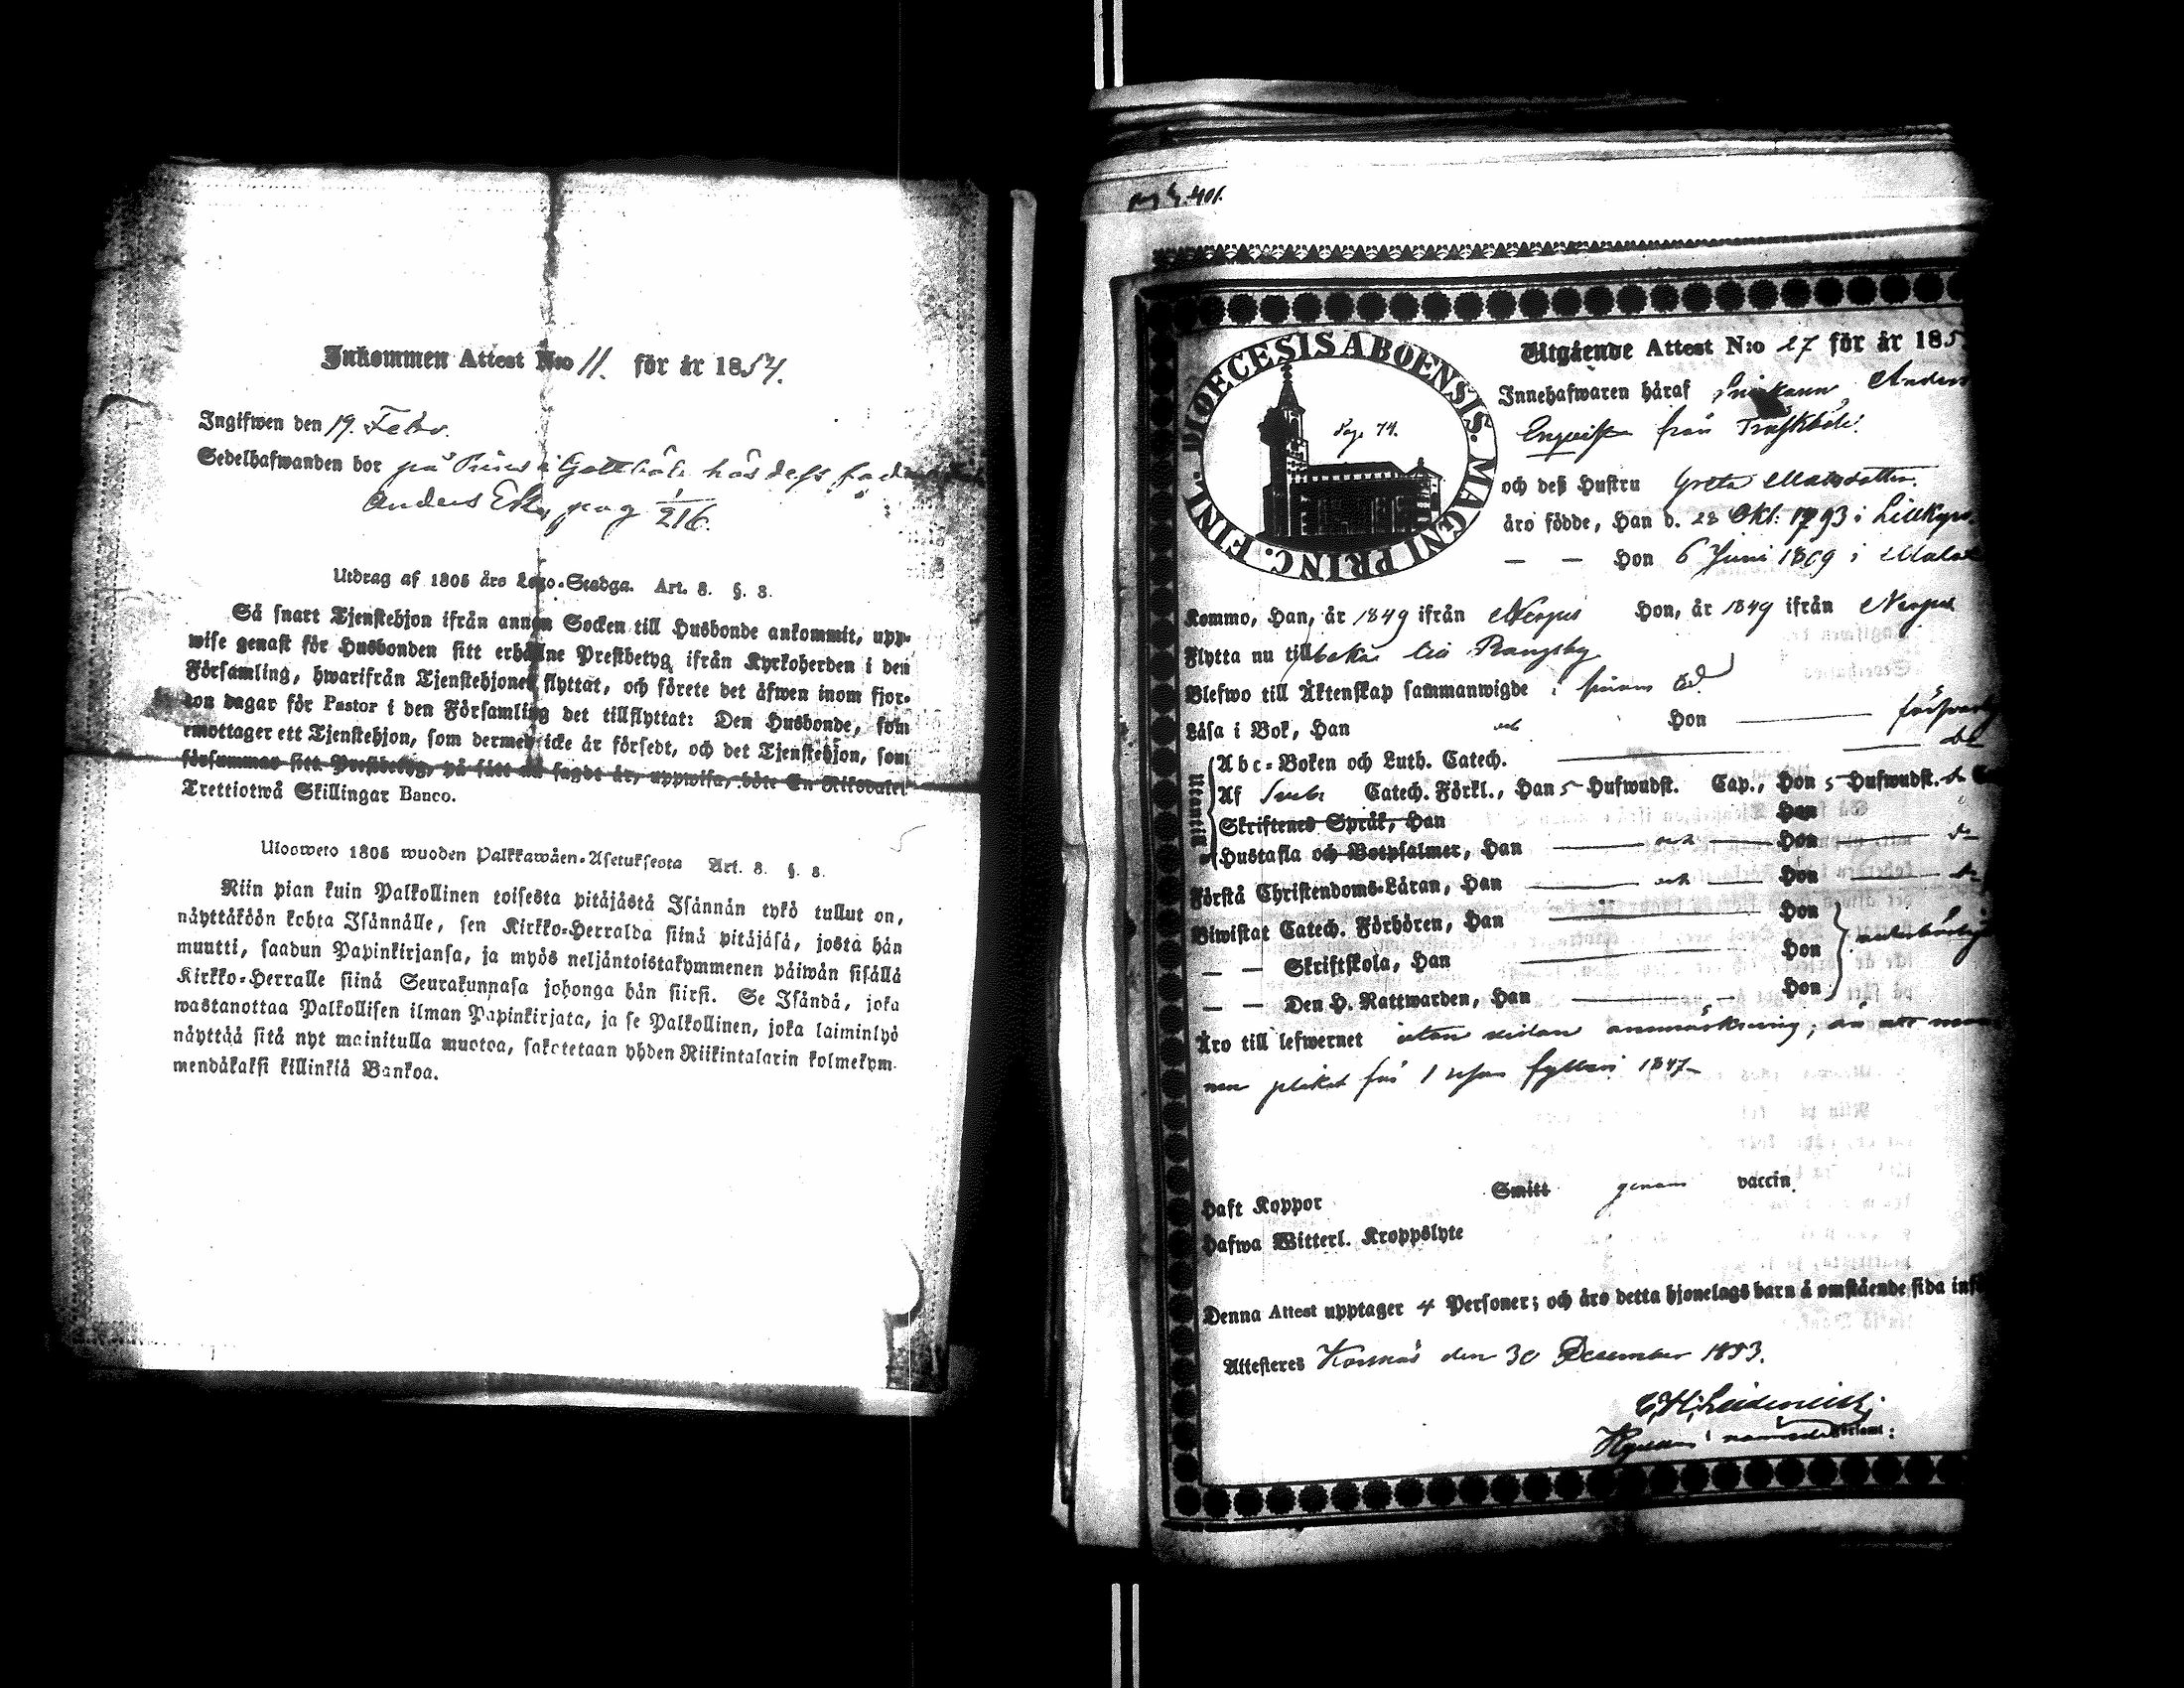 Inkommen Attest N:o 11. för år 1854.
Ingifwen den 19. Febr.
Sedelhafwanden bor på i hos dess
Anders pag 1/216.
Utdrag af 1805 års Lego-Stadga. Art. 8. §. 8.
Så snart Tjenstehjon ifrån annan Socken till Husbonde ankommit, upp-
wise genast för Husbonden sitt erhållne Prestbetyg ifrån Kyrkoherden i den
Församling, hwarifrån Tjenstehjonet flyttat, och förete det äfwen inom fjor-
ton dagar för Pastor i den Församling det tillflyttat: Den Husbonde, som
emottager ett Tjenstehjon, som dermed icke är försedt, och det Tjenstehjon, som
försummar sitt Prestbetyg, på sätt nu sagdt är, uppwisa, böte En Riksdaler
Trettiotwå Skillingar Banco.
Ulosweto 1805 wuoden Palkkawäen-Asetuksesta Art. 8. §. 8.
Niin pian kuin Palkollinen toisesta pitäjästä Isännän tykö tullut on,
näyttäköön kohta Isännälle, sen Kirkko-Herralda siinä pitäjäsä, josta hän
muutti, saadun Papinkirjansa, ja myös neljäntoistakymmenen päiwän sisällä
Kirkko-Herralle siinä Seurakunnasa johonga hän siirsi. Se Isändä, joka
wastanottaa Palkollisen ilman Papinkirjata, ja se Palkollinen, joka laiminlyö
näyttää sitä nyt mainitulla muotoa, sakotetaan yhden Riikintalarin kolmekym-
mendäkaksi killinkiä Bankoa.
pag 401.
DIOECESIS ABOËNSIS. MAGNI PRINC. FINL.
Pag. 74.
Utgående Attest N:o 27 för år 185
Innehafwaren häraf Anders
från Träskböle
och deß Hustru Greta Matsdotter
äro födde, Han d. 28 Okt: 1793 i Lillkyro
— — Hon 6 Juni 1809 i Malax
Kommo, Han, år 1849 ifrån Nerpes Hon, år 1849 ifrån Nerpes
Flytta nu tillbaka till Rangsby
Blefwo till Äktenskap sammanwigde i
Läsa i Bok, Han och Hon
Utantill
Abc-Boken och Luth. Catech.
Af Catech. Förkl., Han 5 Hufwudst. Cap., Hon 5 Hufwudst.
Skriftenes Språk, Han Hon
Hustafla och Botpsalmer, Han och Hon
Förstå Christendoms-Läran, Han och Hon
Biwistat Catech. Förhören, Han Hon
— — Skriftskola, Han Hon
— — Den H. Nattwarden, Han Hon
Äro till lefwernet utan anmärkning,
plikat för 1 fylleri 1847
Haft Koppor Smitt genom vaccin.
Hafwa Witterl. Kroppslyte
Denna Attest upptager 4 Personer; och äro detta hjonelags barn å omstående sida
Attesteras Korsnäs den 30 December 1853.